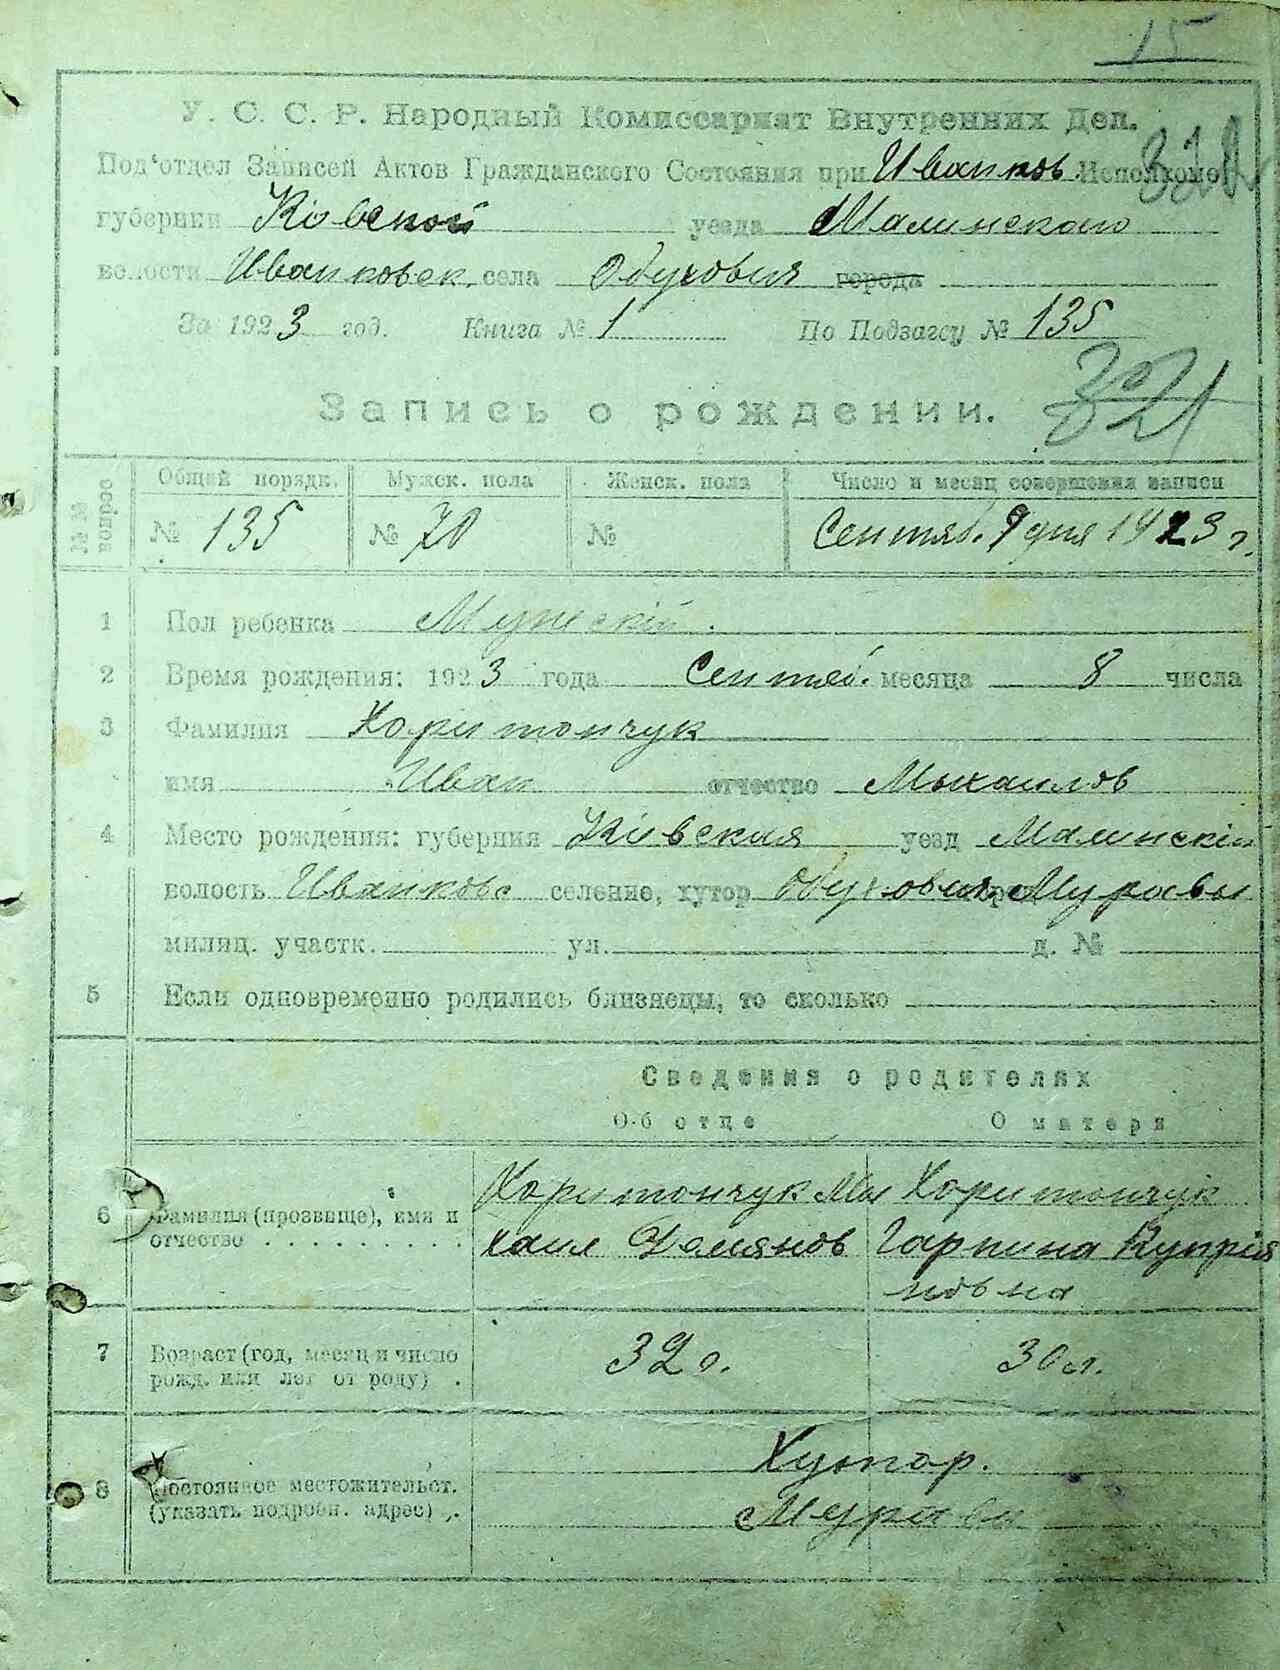 15
У. С. С. Р. Народный Комиссариат Внутренних Дел.
Под'отдел Записей Актов Гражданского Состояния при Иванков. Исполкоме
губернии Кіевской уезда Малинского
волости Иванковск. села Обуховичи города
За 1923 год. Книга № 1 По Подзагсу № 135
321
Запись о рождении.
№№ вопрос
Общий порядк. Мужск. пола Женск. пола Число и месяц совершения записи
№ 135 № 70 № Сентяб. 9 дня 1923 г.
1 Пол ребенка Мужескій.
2 Время рождения: 1923 года Сентяб. месяца 8 числа
3 Фамилия Харитончук
имя Иван отчество Михаилов
4 Место рождения: губерния Кіевская уезд Малинскій
волость Иванковс селение, хутор Обуховичи Муравы
милиц. участк. ул. д. №
5 Если одновременно родились близнецы, то сколько
Сведения о родителях
Об отце О матери
6 Фамилия (прозвище), имя и отчество
Харитончук Ми Харитончук
хаил Демянов Гарпина Купрія
новна
7 Возраст (год, месяц и число рожд. или лет от роду) .
32 л. 30 л.
8 Постоянное местожительст. (указать подробн. адрес) .
Хутор.
Муравы